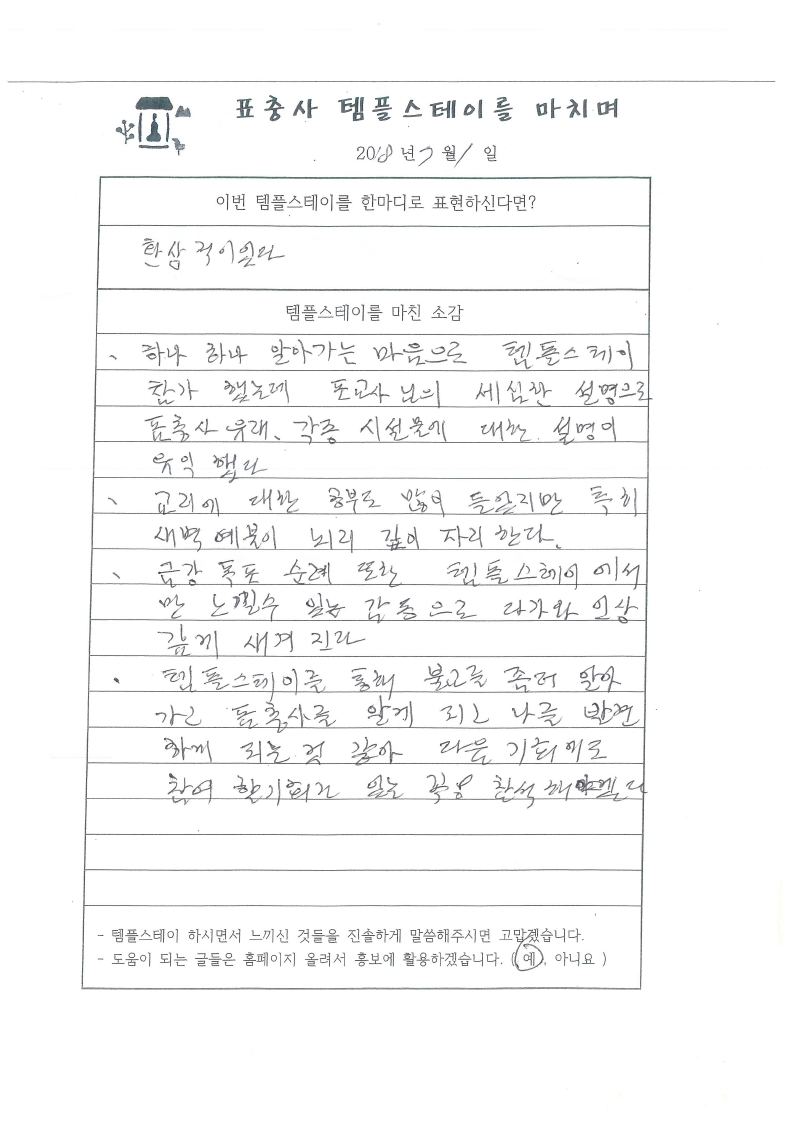 표충사 템플스테이를 마치며
2018년 7월 1일
이번 템플스테이를 한마디로 표현하신다면?
환상적이었다
템플스테이를 마친 소감
、 하나 하나 알아가는 마음으로 템플스테이
참가 했는데 포교사 님의 세심한 설명으로
표충사 유래、각종 시설물에 대한 설명이
유익 했다
、 교리에 대한 공부도 많이 들었지만 특히
새벽 예불이 뇌리 깊이 자리 한다.
、 금강 폭포 순례 또한 템플스테이에서
만 느낄수 있는 감동으로 다가와 인상
깊게 새겨 진다
、 템플스테이를 통해 불교를 좀더 알아
가고 표충사를 알게 되는 나를 발견
하게 되는 것 같아 다음 기회에도
참여 할기회가 있는 꼭 참석 해야겠다
- 템플스테이 하시면서 느끼신 것들을 진솔하게 말씀해주시면 고맙겠습니다.
- 도움이 되는 글들은 홈페이지 올려서 홍보에 활용하겠습니다. ( 예 , 아니요 )